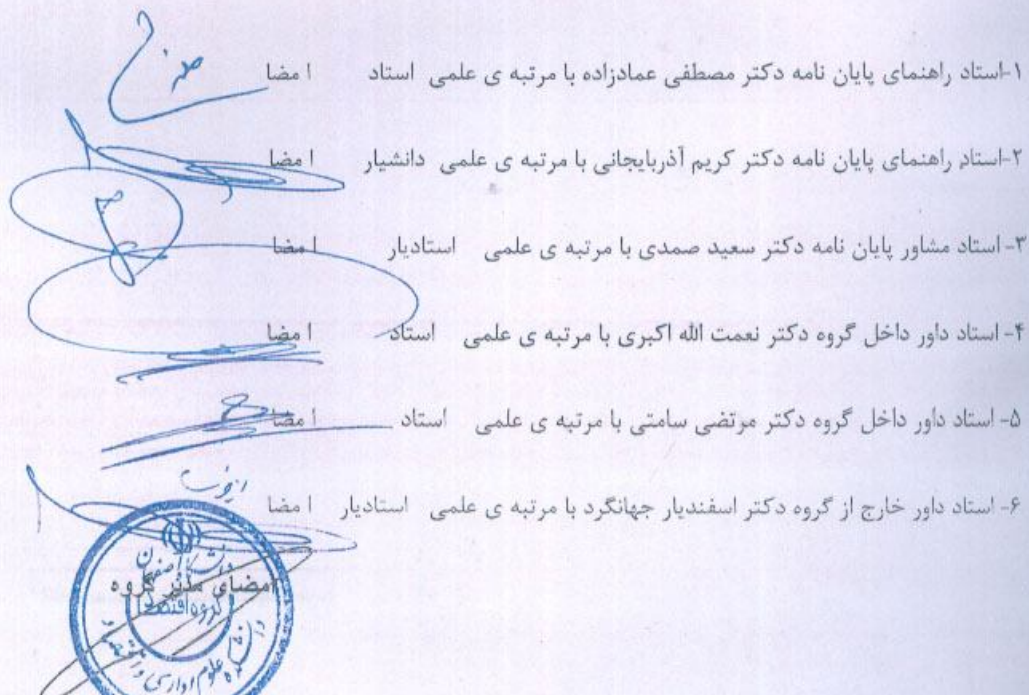 ۱-استاد راهنمای پایان نامه دکتر مصطفی عمادزاده با مرتبه ی علمی استاد امضا
۲-استاد راهنمای پایان نامه دکتر کریم آذربایجانی با مرتبه ی علمی دانشیار امضا
۳- استاد مشاور پایان نامه دکتر سعید صمدی با مرتبه ی علمی استادیار امضا
۴- استاد داور داخل گروه دکتر نعمت الله اکبری با مرتبه ی علمی استاد امضا
۵- استاد داور داخل گروه دکتر مرتضی سامتی با مرتبه ی علمی استاد امضا
۶- استاد داور خارج از گروه دکتر اسفندیار جهانگرد با مرتبه ی علمی استادیار امضا
امضای مدیر گروه
گروه اقتصاد